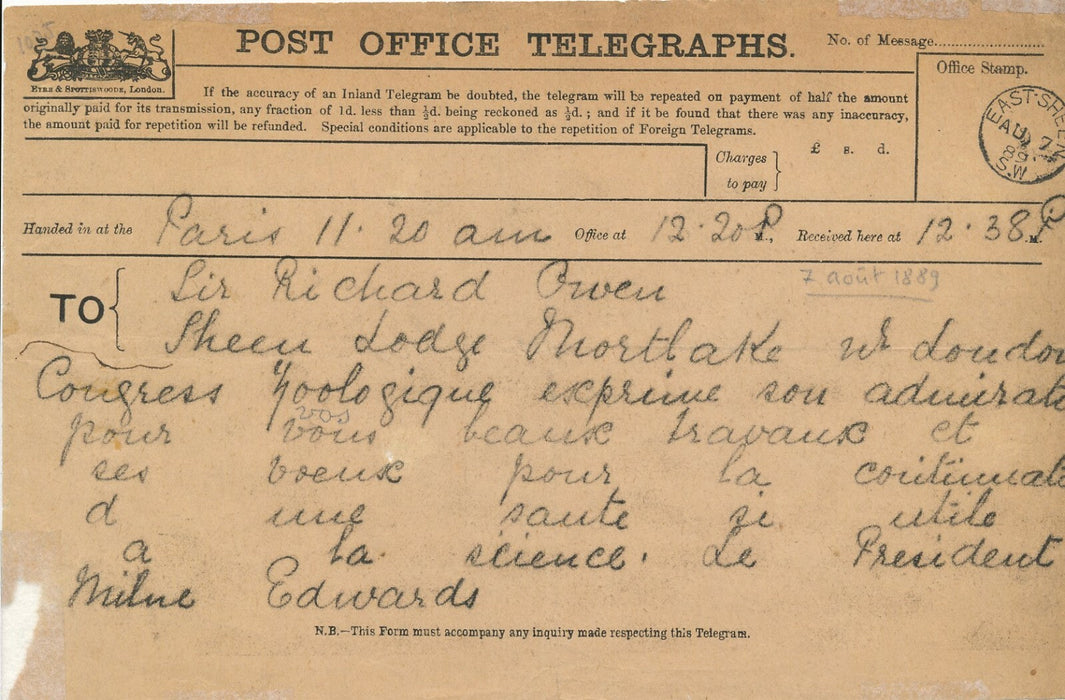 POST OFFICE TELEGRAPHS.
No. of Message
Office Stamp.
EYRE & SPOTTISWOODE, LONDON.
If the accuracy of an Inland Telegram be doubted, the telegram will be repeated on payment of half the amount
originally paid for its transmission, any fraction of 1d. less than ½d. being reckoned as ½d.; and if it be found that there was any inaccuracy,
the amount paid for repetition will be refunded. Special conditions are applicable to the repetition of Foreign Telegrams.
EAST-SHEEN
AU 7
89
S.W
Charges
to pay
£ s. d.
Handed in at the Paris 11.20 am Office at 12.20 P M., Received here at 12.38 P M.
7 août 1889
TO
Sir Richard Owen
Sheen Lodge Mortlake nr London
Congress Zoologique exprime son admirat
vos
pour vous beaux travaux et
ses voeux pour la continuat
d une sante si utile
a la science. Le President
Milne Edwards
N.B.—This Form must accompany any inquiry made respecting this Telegram.